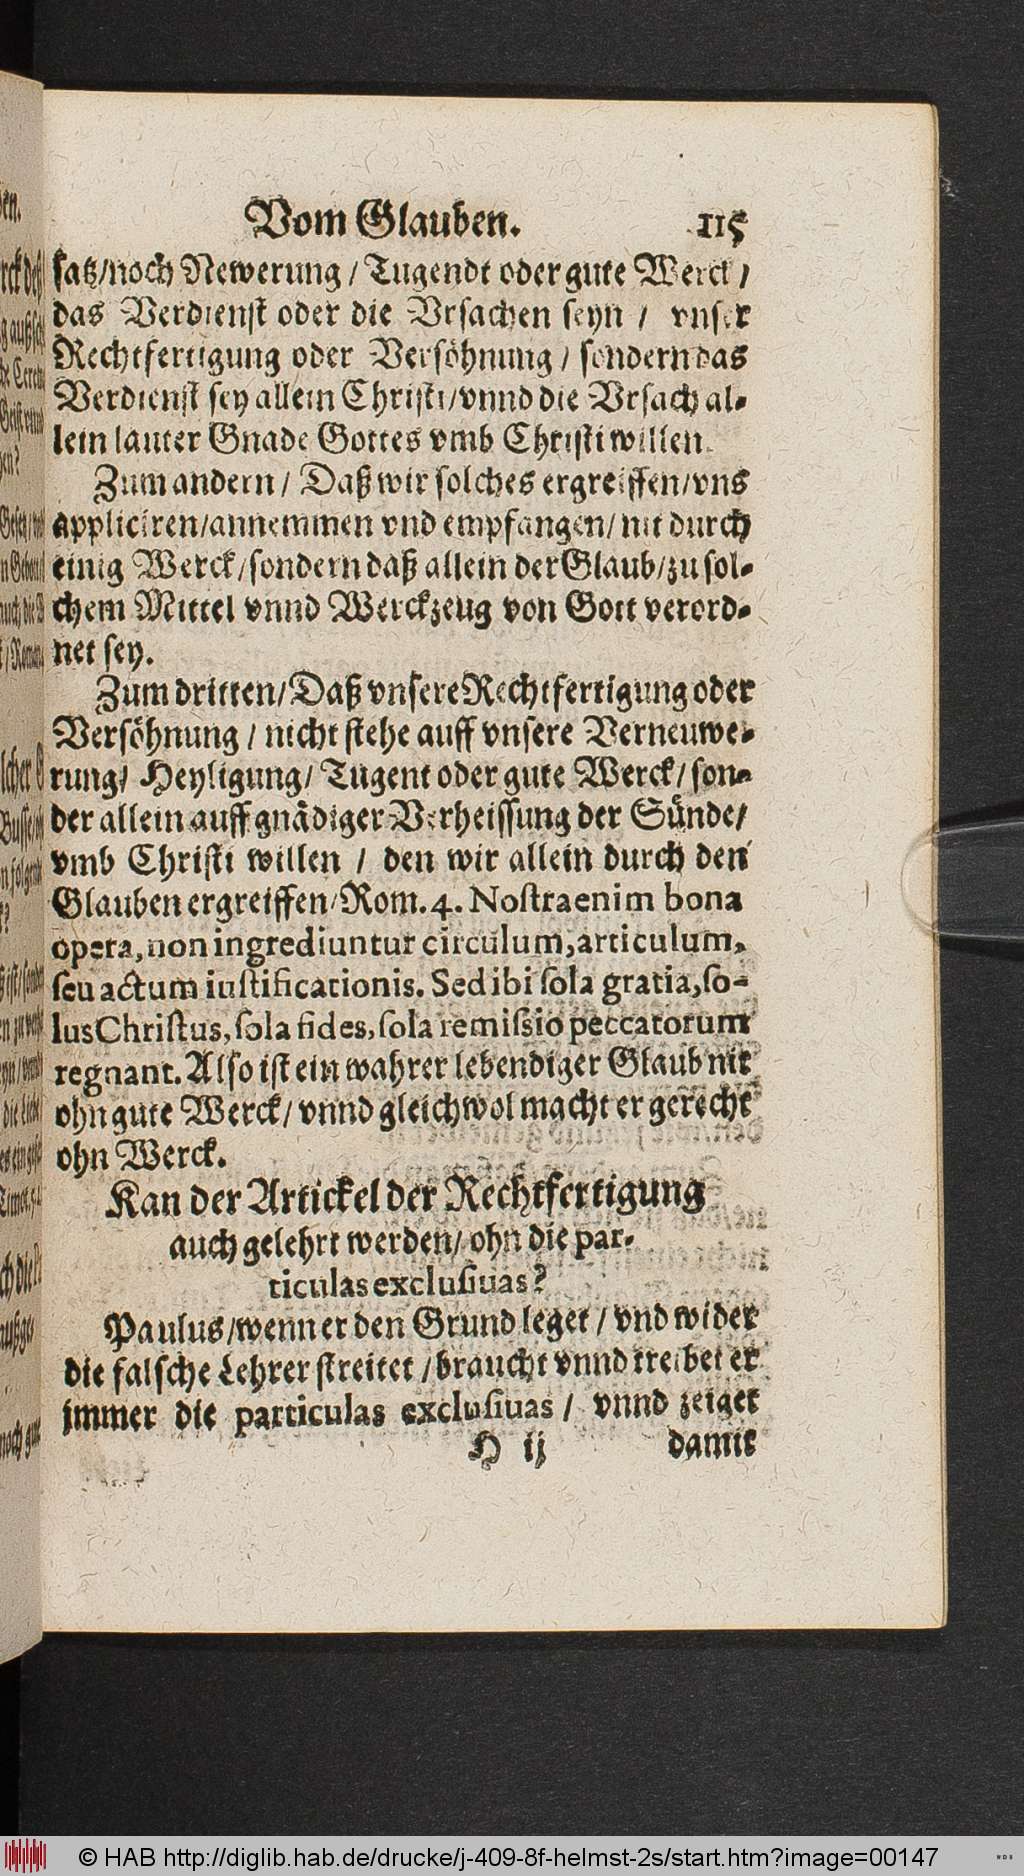 Vom Glauben. 115
satz/noch Newerung / Tugendt oder gute Werck /
das Verdienst oder die Vrsachen seyn / vnser
Rechtfertigung oder Versöhnung / sondern das
Verdienst sey allein Christi/vnnd die Vrsach al-
lein lauter Gnade Gottes vmb Christi willen.
Zum andern / Daß wir solches ergreiffen/vns
appliciren/annemmen vnd empfangen/ nit durch
einig Werck/sondern daß allein der Glaub/zu sol-
chem Mittel vnnd Werckzeug von Gott verord-
net sey.
Zum dritten/Daß vnsere Rechtfertigung oder
Versöhnung / nicht stehe auff vnsere Verneuwe-
rung/ Heyligung/ Tugent oder gute Werck/ son-
der allein auff gnädiger Verheissung der Sünde/
vmb Christi willen / den wir allein durch den
Glauben ergreiffen/Rom. 4. Nostra enim bona
opera, non ingrediuntur circulum, articulum,
seu actum iustificationis. Sed ibi sola gratia, so-
lus Christus, sola fides, sola remissio peccatorum
regnant. Also ist ein wahrer lebendiger Glaub nit
ohn gute Werck/ vnnd gleichwol macht er gerecht
ohn Werck.
Kan der Artickel der Rechtfertigung
auch gelehrt werden/ ohn die par-
ticulas exclusiuas?
Paulus/wenn er den Grund leget / vnd wider
die falsche Lehrer streitet /braucht vnnd treibet er
jmmer die particulas exclusiuas / vnnd zeiget
H ij damit
© HAB http://diglib.hab.de/drucke/j-409-8f-helmst-2s/start.htm?image=00147